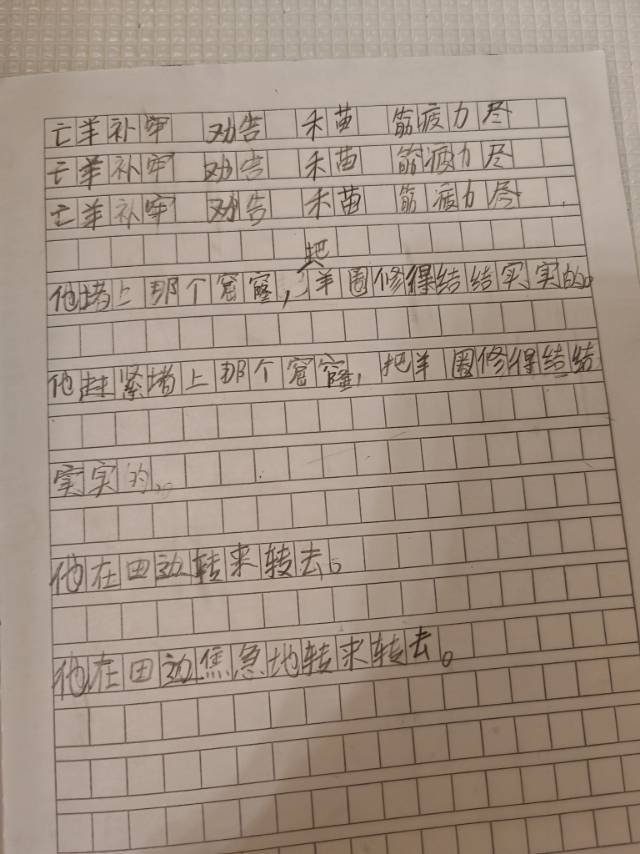 亡羊补牢 劝告 禾苗 筋疲力尽
亡羊补牢 劝告 禾苗 筋疲力尽
亡羊补牢 劝告 禾苗 筋疲力尽
他堵上那个窟窿,把羊圈修得结结实实的。
他赶紧堵上那个窟窿,把羊圈修得结结
实实的。
他在田边转来转去。
他在田边焦急地转来转去。